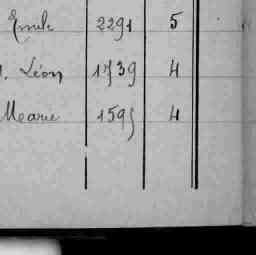 Emile 2291 5
Léon 1739 4
Marie 1595 4